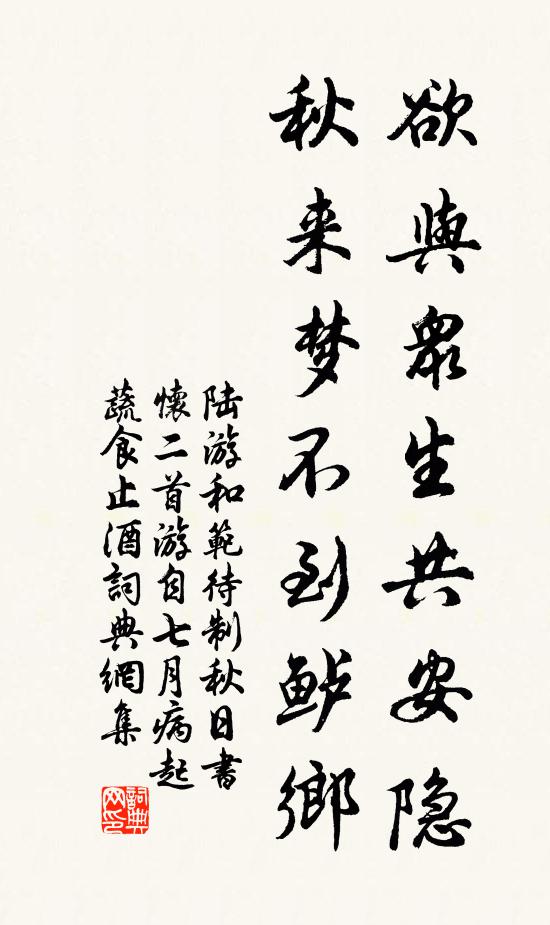 欲與眾生共安隐
秋来梦不到鲈鄉
陆游和範待制秋日書
懷二首游自七月病起
蔬食止酒詞典網集
詞典
网印